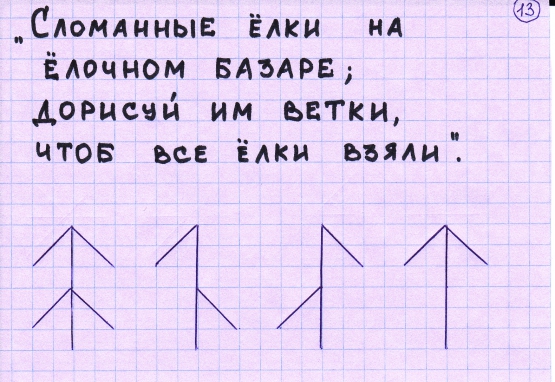 13
„Сломанные ёлки на
ёлочном базаре;
дорисуй им ветки,
чтоб все ёлки взяли".